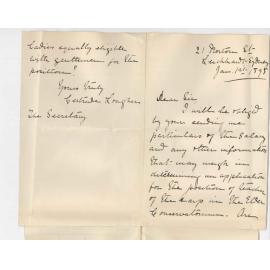 21 Norton St
Leichhardt, Sydney
Jan. 1st 1898
Dear Sir
I will be obliged
by your sending me
particulars of the Salary
and any other information
that may weigh in
determining an application
for the position of teacher
of the harp in the Elder
Conservatorium. Are
Ladies equally eligible
with gentlemen for the
position?
Yours truly
Gertrude
The Secretary